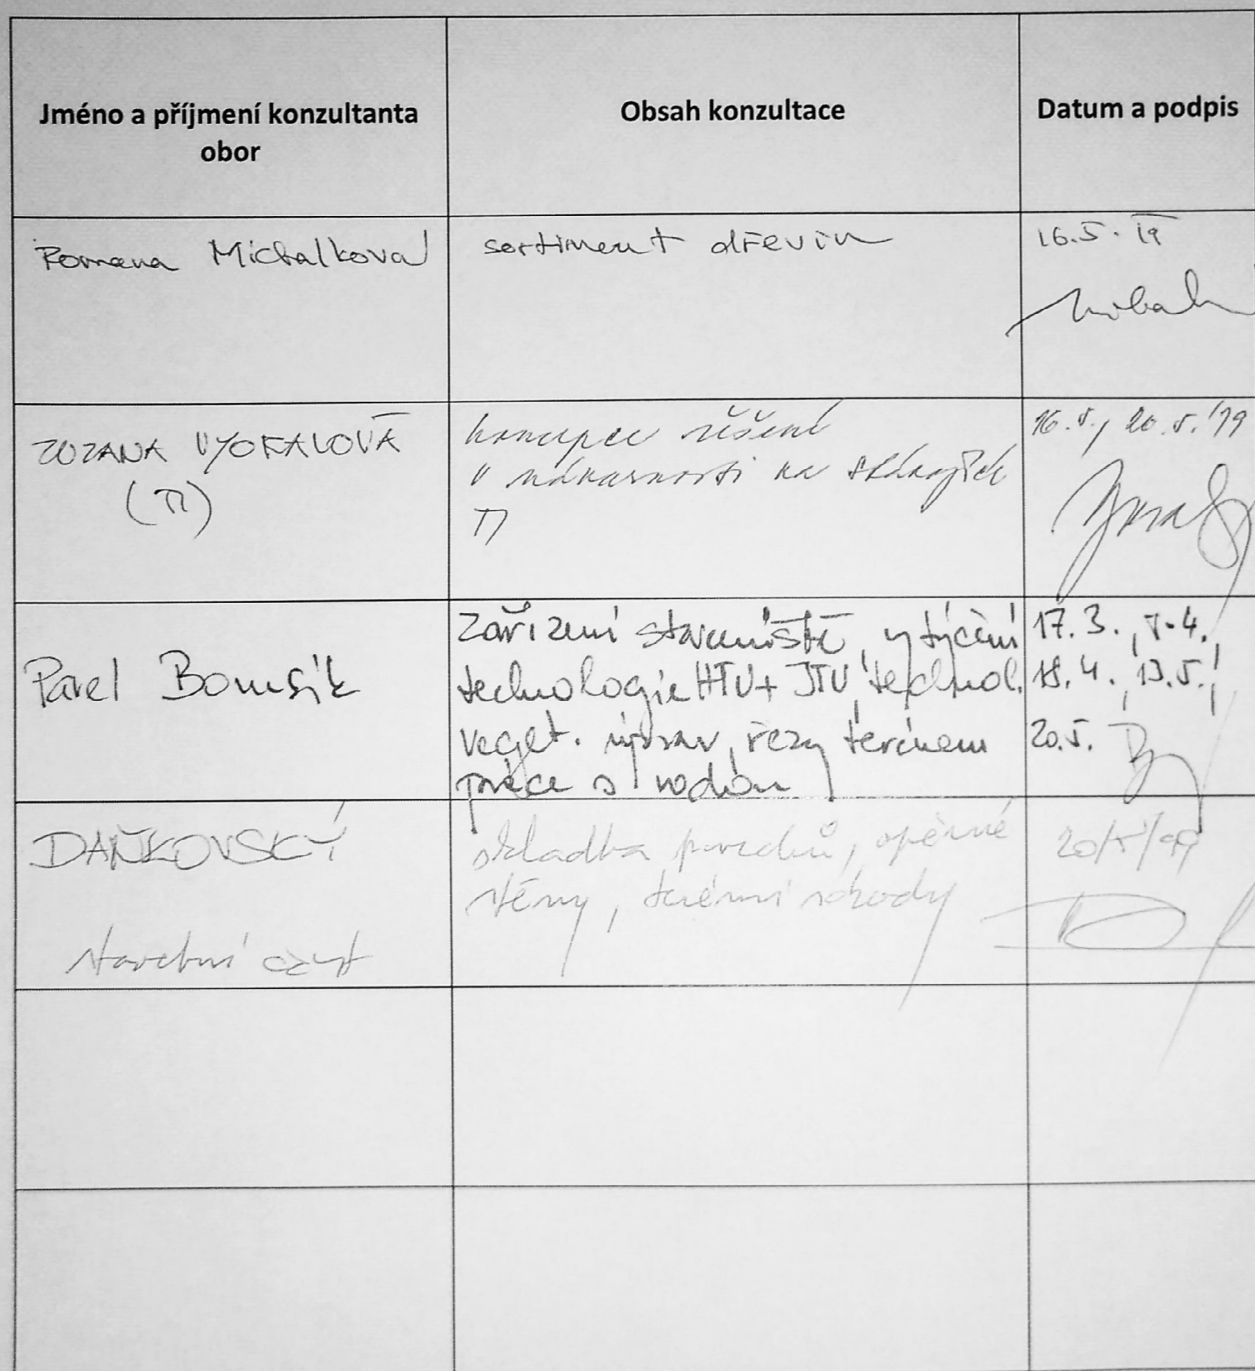 Jméno a příjmení konzultanta
obor
Obsah konzultace
Datum a podpis
Romana Michalkova
sortiment dřevin
16.5. 19
ZUZANA VYORALOVÁ
(TI)
koncepce řešení
v návaznosti na stávající
TI
16.5., 20.5.'19
Pavel Borusík
zařízení staveniště, vytýčení
technologie HTU + JTU, technol.
veget. úprav, řezy terénem
práce s vodou
17.3., 8.4.,
18.4., 13.5.,
20.5.
DAŇKOVSKÝ
stavební část
skladba povrchů, opěrné
stěny, terénní schody
20/5/19